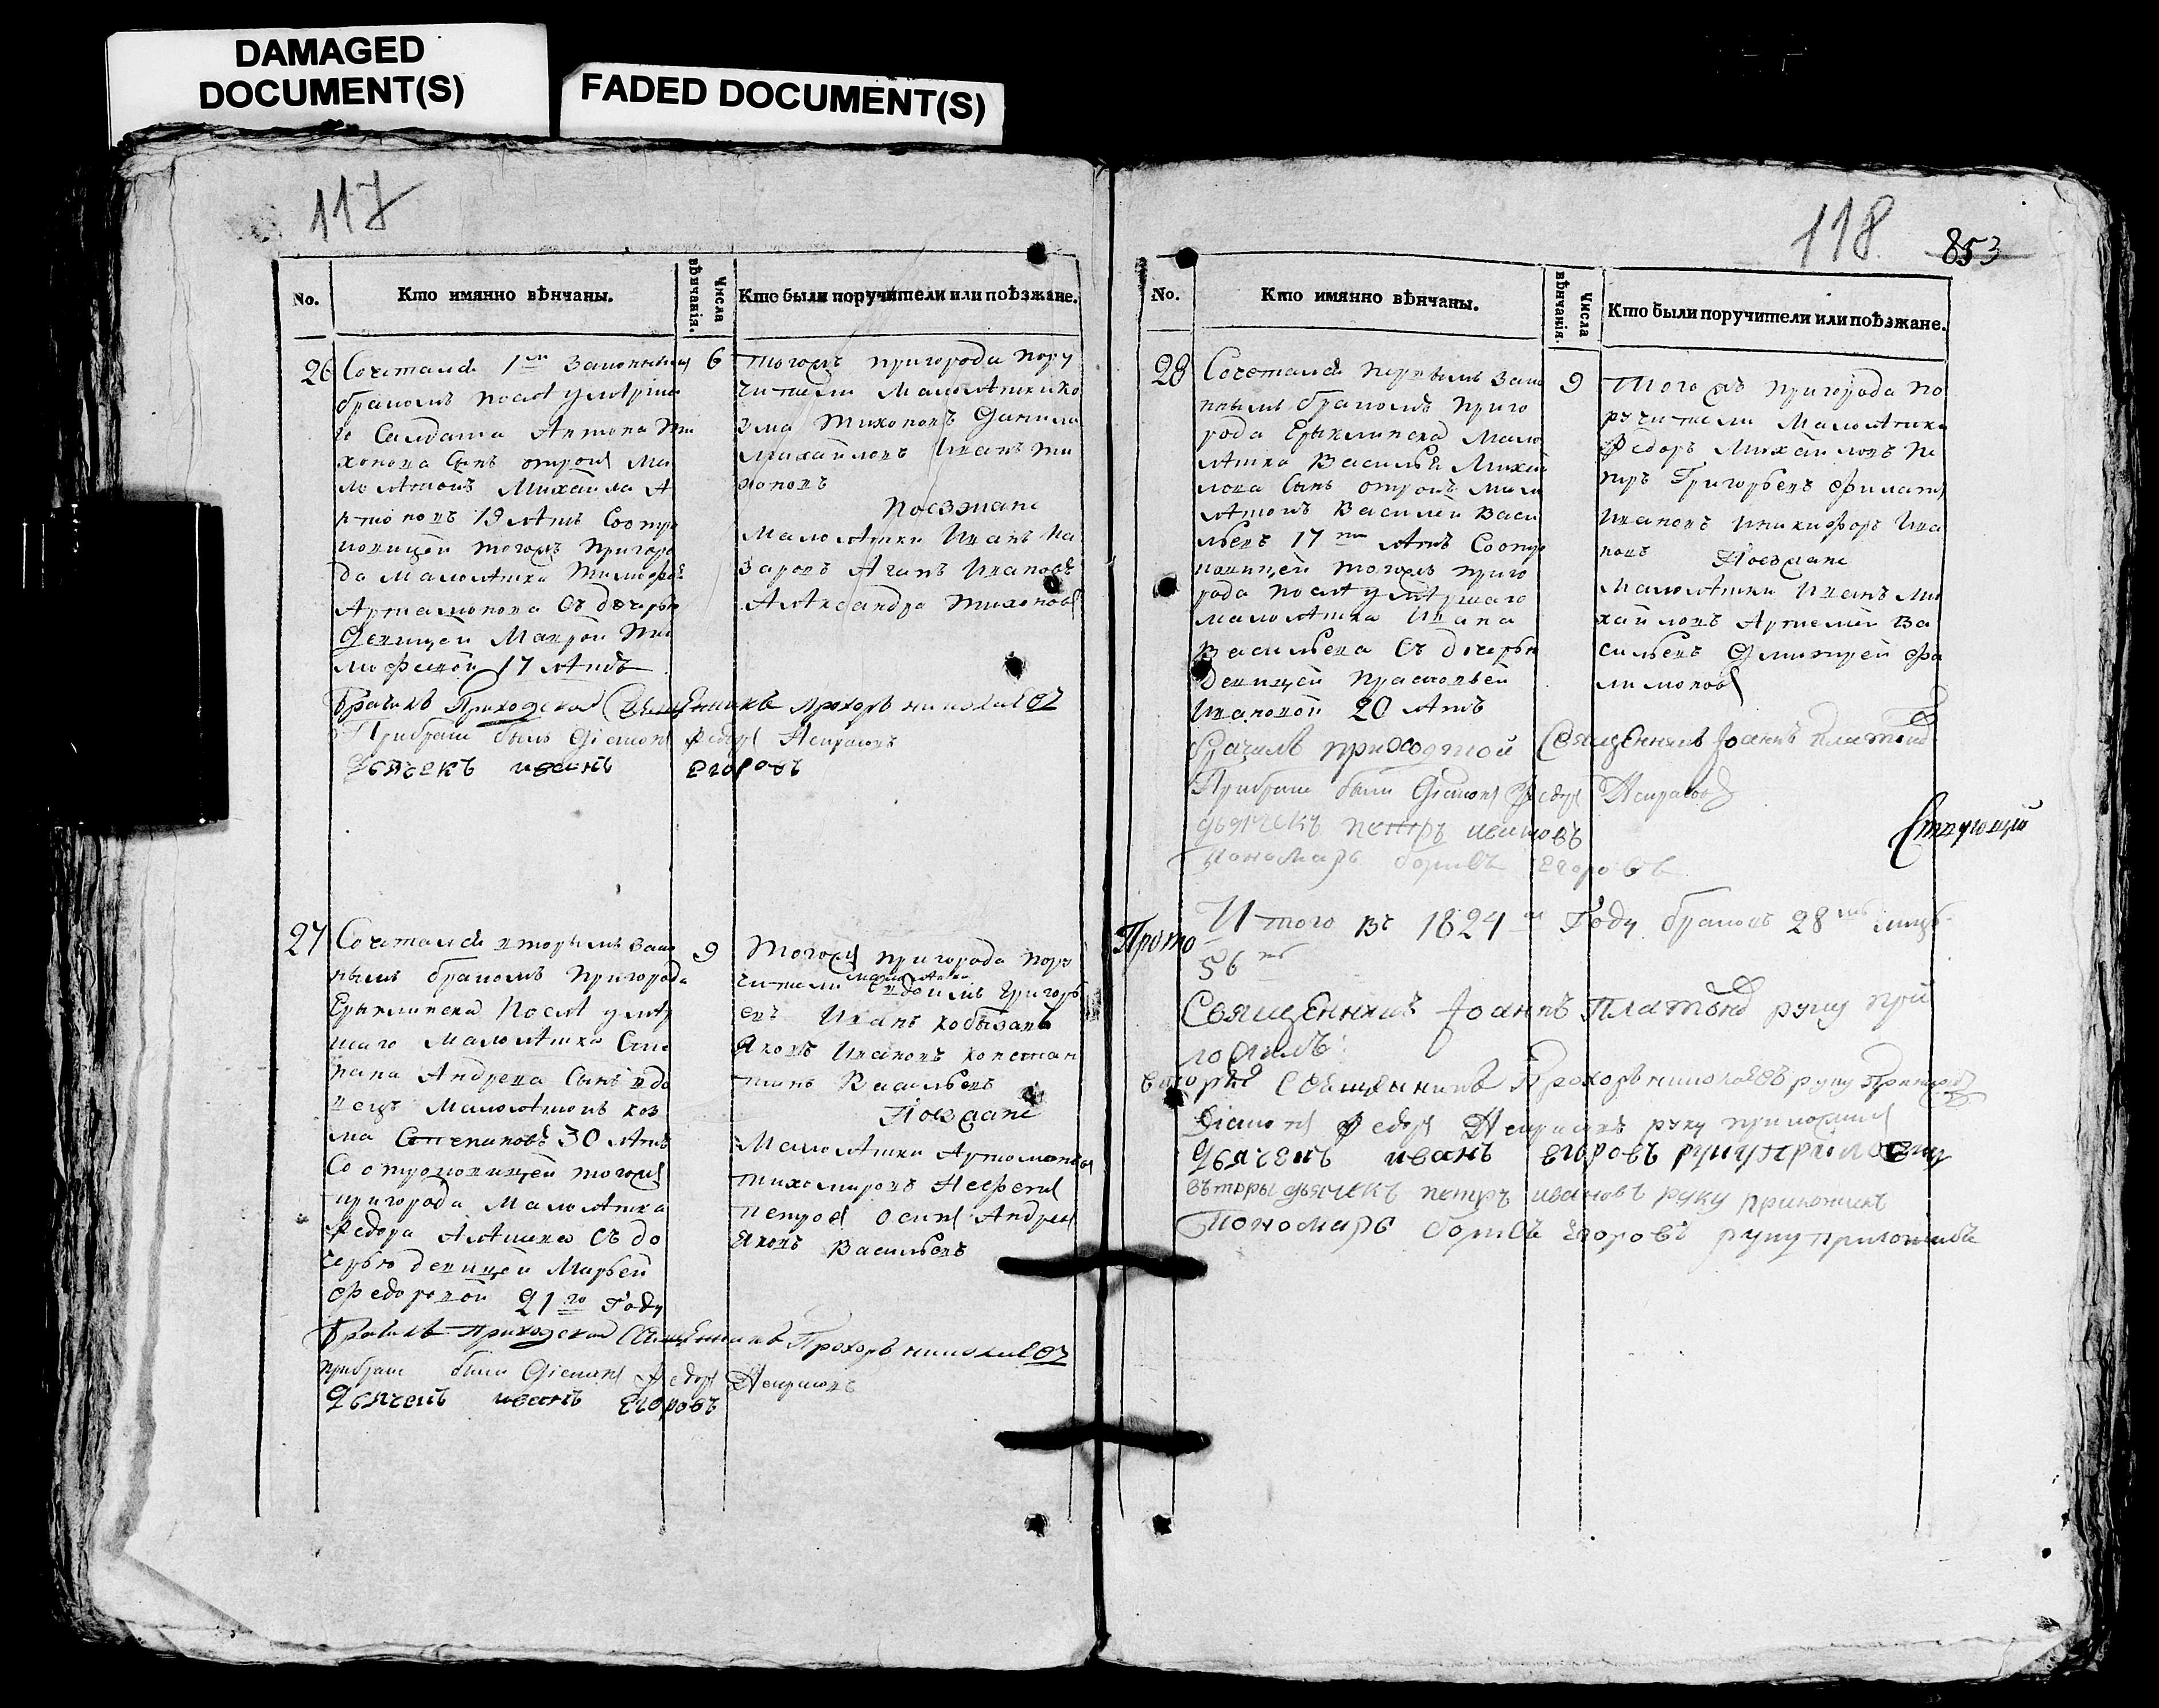 DAMAGED
DOCUMENT(S)
FADED DOCUMENT(S)
117
No.
Кто имянно вѣнчаны.
Числа вѣнчанія.
Кто были поручители или поѣзжане.
26
Сочетался 1м законным
бракомъ посля умярша
го Салдата Антона Ти
хонова сынъ отрокъ ма
лолятокъ Михайла А
нтоновъ 19 лятъ Соотро
ковицей тогожъ пригоро
да малолятка Тимофея
Артамонова съ дочерью
девицей Маврой Ти
мофевой 17 лятъ
6
Тогожъ пригорода пору
чители Малолятки ко
зма Тихоновъ Данила
Михайловъ Иванъ Ти
хоновъ
Поезжане
Малолятки Иванъ На
заровъ Агапъ Ивановъ
Аляксандра Тихоновъ
Бракъ Приходской Священникъ Прохоръ Николаевъ
При браке былъ Диаконъ Федоръ
Дьячекъ иванъ егоровъ
27
Сочетался вторымъ зако
нымъ бракомъ Пригорода
Ерыклинска посля умяр
шаго Малолятка Сте
пана Андрева сынъ вдо
вецъ Малолятокъ коз
ма Степановъ 30 лятъ
Соотроковицей тогожъ
пригорода Малолятка
Федора Аляшева съ до
черью девицей Марьей
Федоровой 21го году
9
Тогожъ пригорода пору
чители малолятки Евдокимъ Григорь
евъ Иванъ
Яковъ Ивановъ констан
тинъ Васильевъ
Поезжане
Малолятки Артамонъ
Тихомировъ
Петровъ Осипъ Андрев
Яковъ Васильевъ
Бракъ Приходской Священникъ Прохоръ Николаевъ
При браке были Диаконъ Федоръ
Дьячекъ иванъ егоровъ
118
853
No.
Кто имянно вѣнчаны.
Числа вѣнчанія.
Кто были поручители или поѣзжане.
28
Сочетался первымъ зако
ннымъ бракомъ приго
рода Ерыклинска Мало
лятка Василья Михай
лова сынъ отрокъ мало
лятокъ Василей Васи
льевъ 17ти лятъ Соотро
ковицей тогожъ приго
рода посля умяршаго
малолятка Ивана
Васильева съ дочерью
девицей Прасковьей
Ивановой 20 лятъ
9
Тогожъ пригорода по
ручители Малолятки
Федоръ Михайловъ Пе
тръ Григорьевъ Филатъ
Ивановъ Никифоръ Ива
новъ Поезжане
Малолятки Иванъ Ми
хайловъ Артемей Ва
сильевъ Дмитрей Фи
лимоновъ
Брачилъ приходской Священникъ Иоаннъ Платонов
При браке были Диаконъ Федоръ
дьячекъ петръ ивановъ
Пономарь борисъ егоровъ
Итого въ 1824м Году браковъ 28мъ лицъ
56ть
Священникъ Иоаннъ Платонов руку при
ложилъ
второй Священникъ Прохоръ николаевъ руку приложилъ
Диаконъ Федоръ руку приложилъ
Дьячекъ иванъ егоровъ руку приложилъ
вторы дьячекъ петръ ивановъ руку приложилъ
Пономарь борисъ егоровъ руку приложилъ